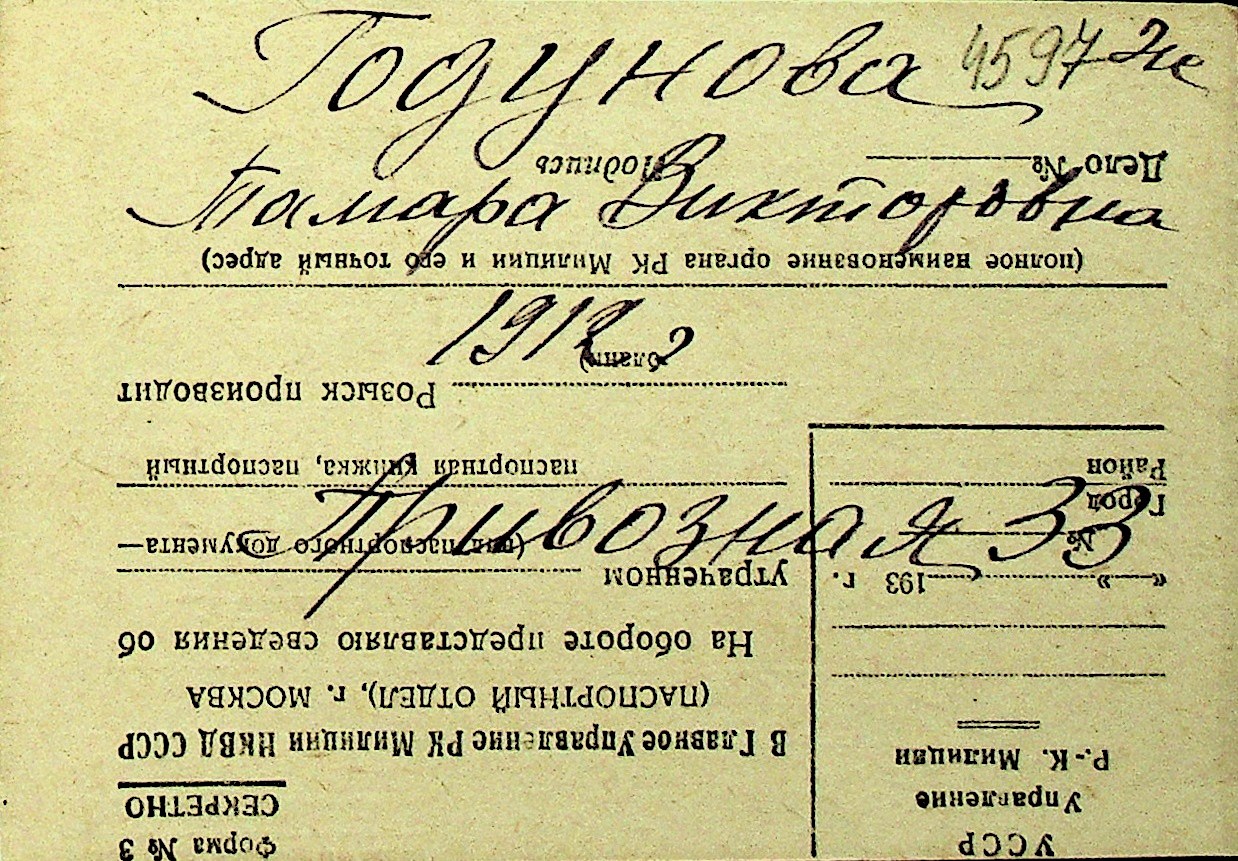 Годунова 4597
Тамара Викторовна
1912 г
Привозная 33
УССР
Управление
Р.-К. Милиции
« » 193 г.
№
Город
Район
Форма № 3
СЕКРЕТНО
В Главное Управление РК Милиции НКВД СССР
(ПАСПОРТНЫЙ ОТДЕЛ), г. МОСКВА
На обороте представляю сведения об
утраченном
(вид паспортного документа—
паспортная книжка, паспортный
бланк)
Розыск производит
(полное наименование органа РК Милиции и его точный адрес)
Дело № Подпись